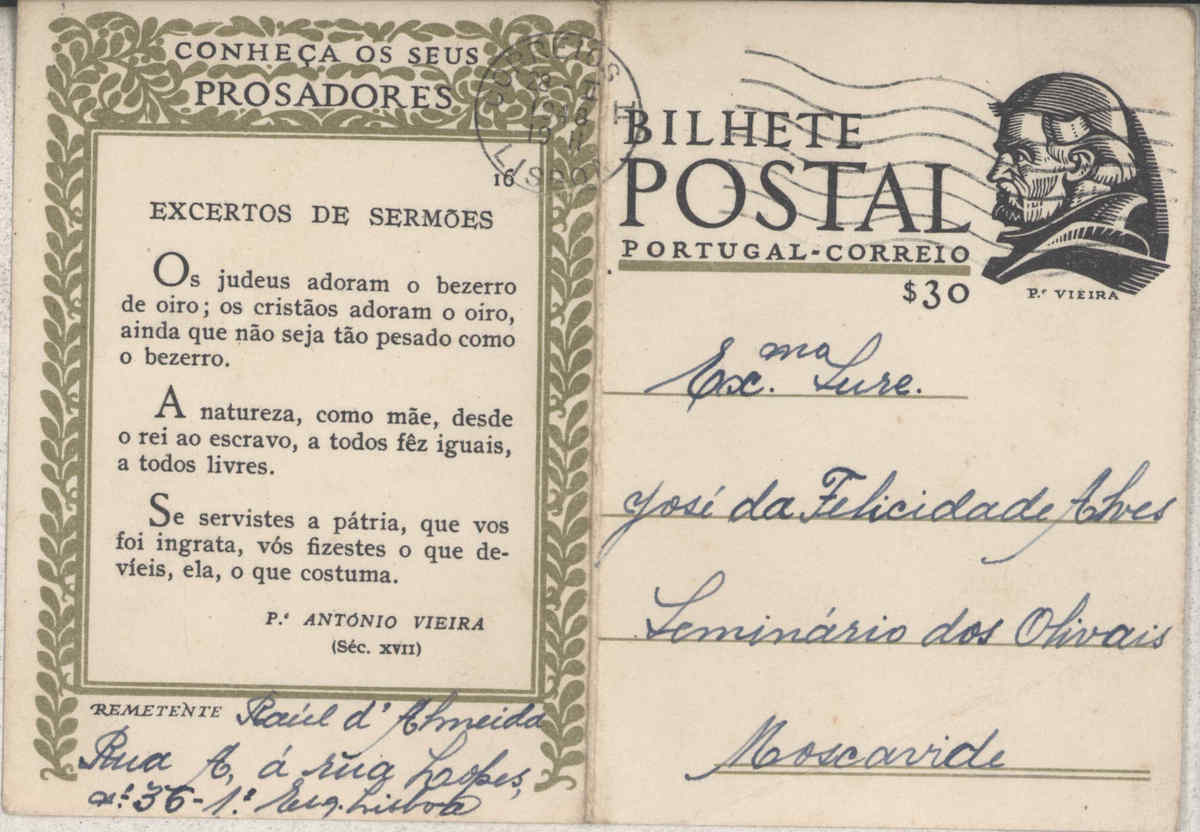 CONHEÇA OS SEUS
PROSADORES
16
EXCERTOS DE SERMÕES
Os judeus adoram o bezerro
de oiro; os cristãos adoram o oiro,
ainda que não seja tão pesado como
o bezerro.
A natureza, como mãe, desde
o rei ao escravo, a todos fêz iguais,
a todos livres.
Se servistes a pátria, que vos
foi ingrata, vós fizestes o que de-
víeis, ela, o que costuma.
P.e ANTÓNIO VIEIRA
(Séc. XVII)
REMETENTE Raúl d'Almeida
Rua A, á rua Lopes,
n.º 36-1.º Esq. Lisboa
CORREIOS
LISBOA
BILHETE
POSTAL
PORTUGAL-CORREIO
$30
P.e VIEIRA
Ex.mo Snre.
José da Felicidade Alves
Seminário dos Olivais
Moscavide